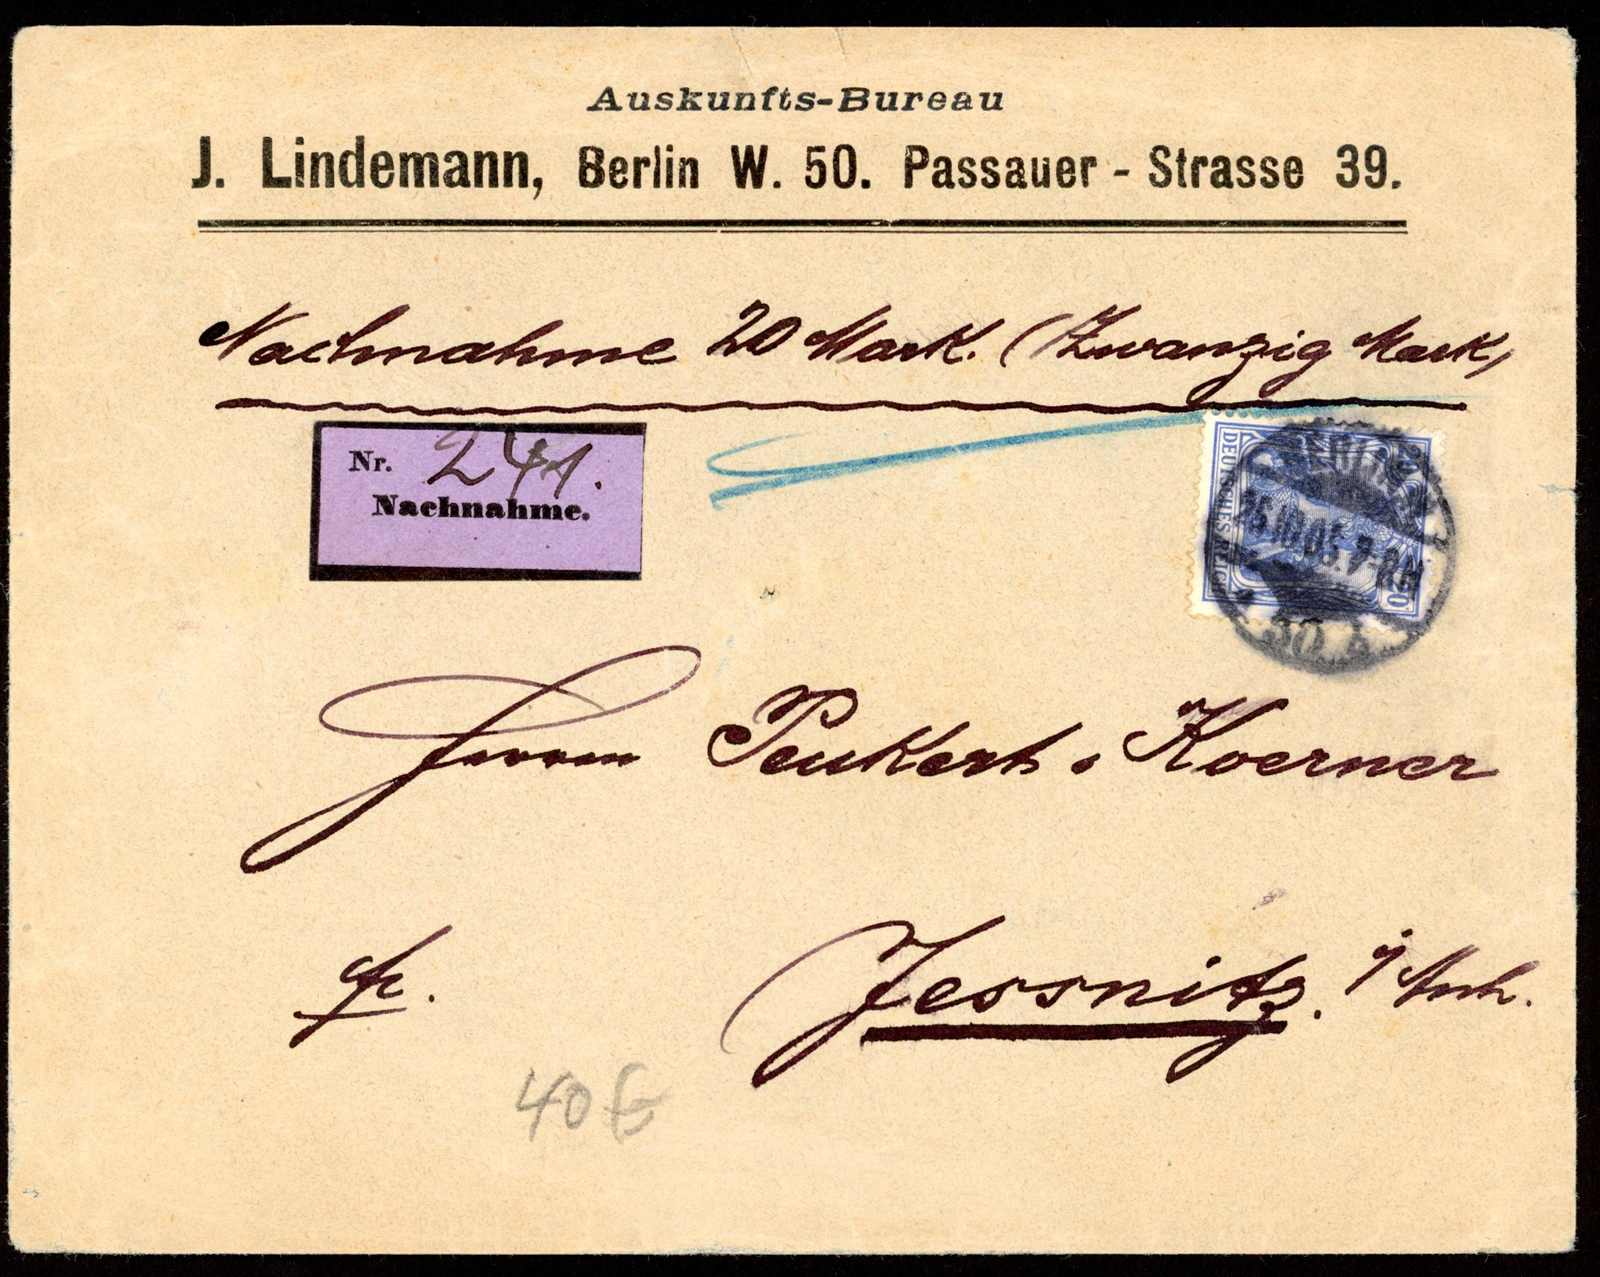 Auskunfts-Bureau
J. Lindemann, Berlin W. 50. Passauer - Strasse 39.
Nachnahme 20 Mark. (Zwanzig Mark)
Nr. 241.
Nachnahme.
DEUTSCHES REICH
20
BERLIN
30
Herren Peukert & Koerner
Jessnitz. i/Anh.
fr.
40 €